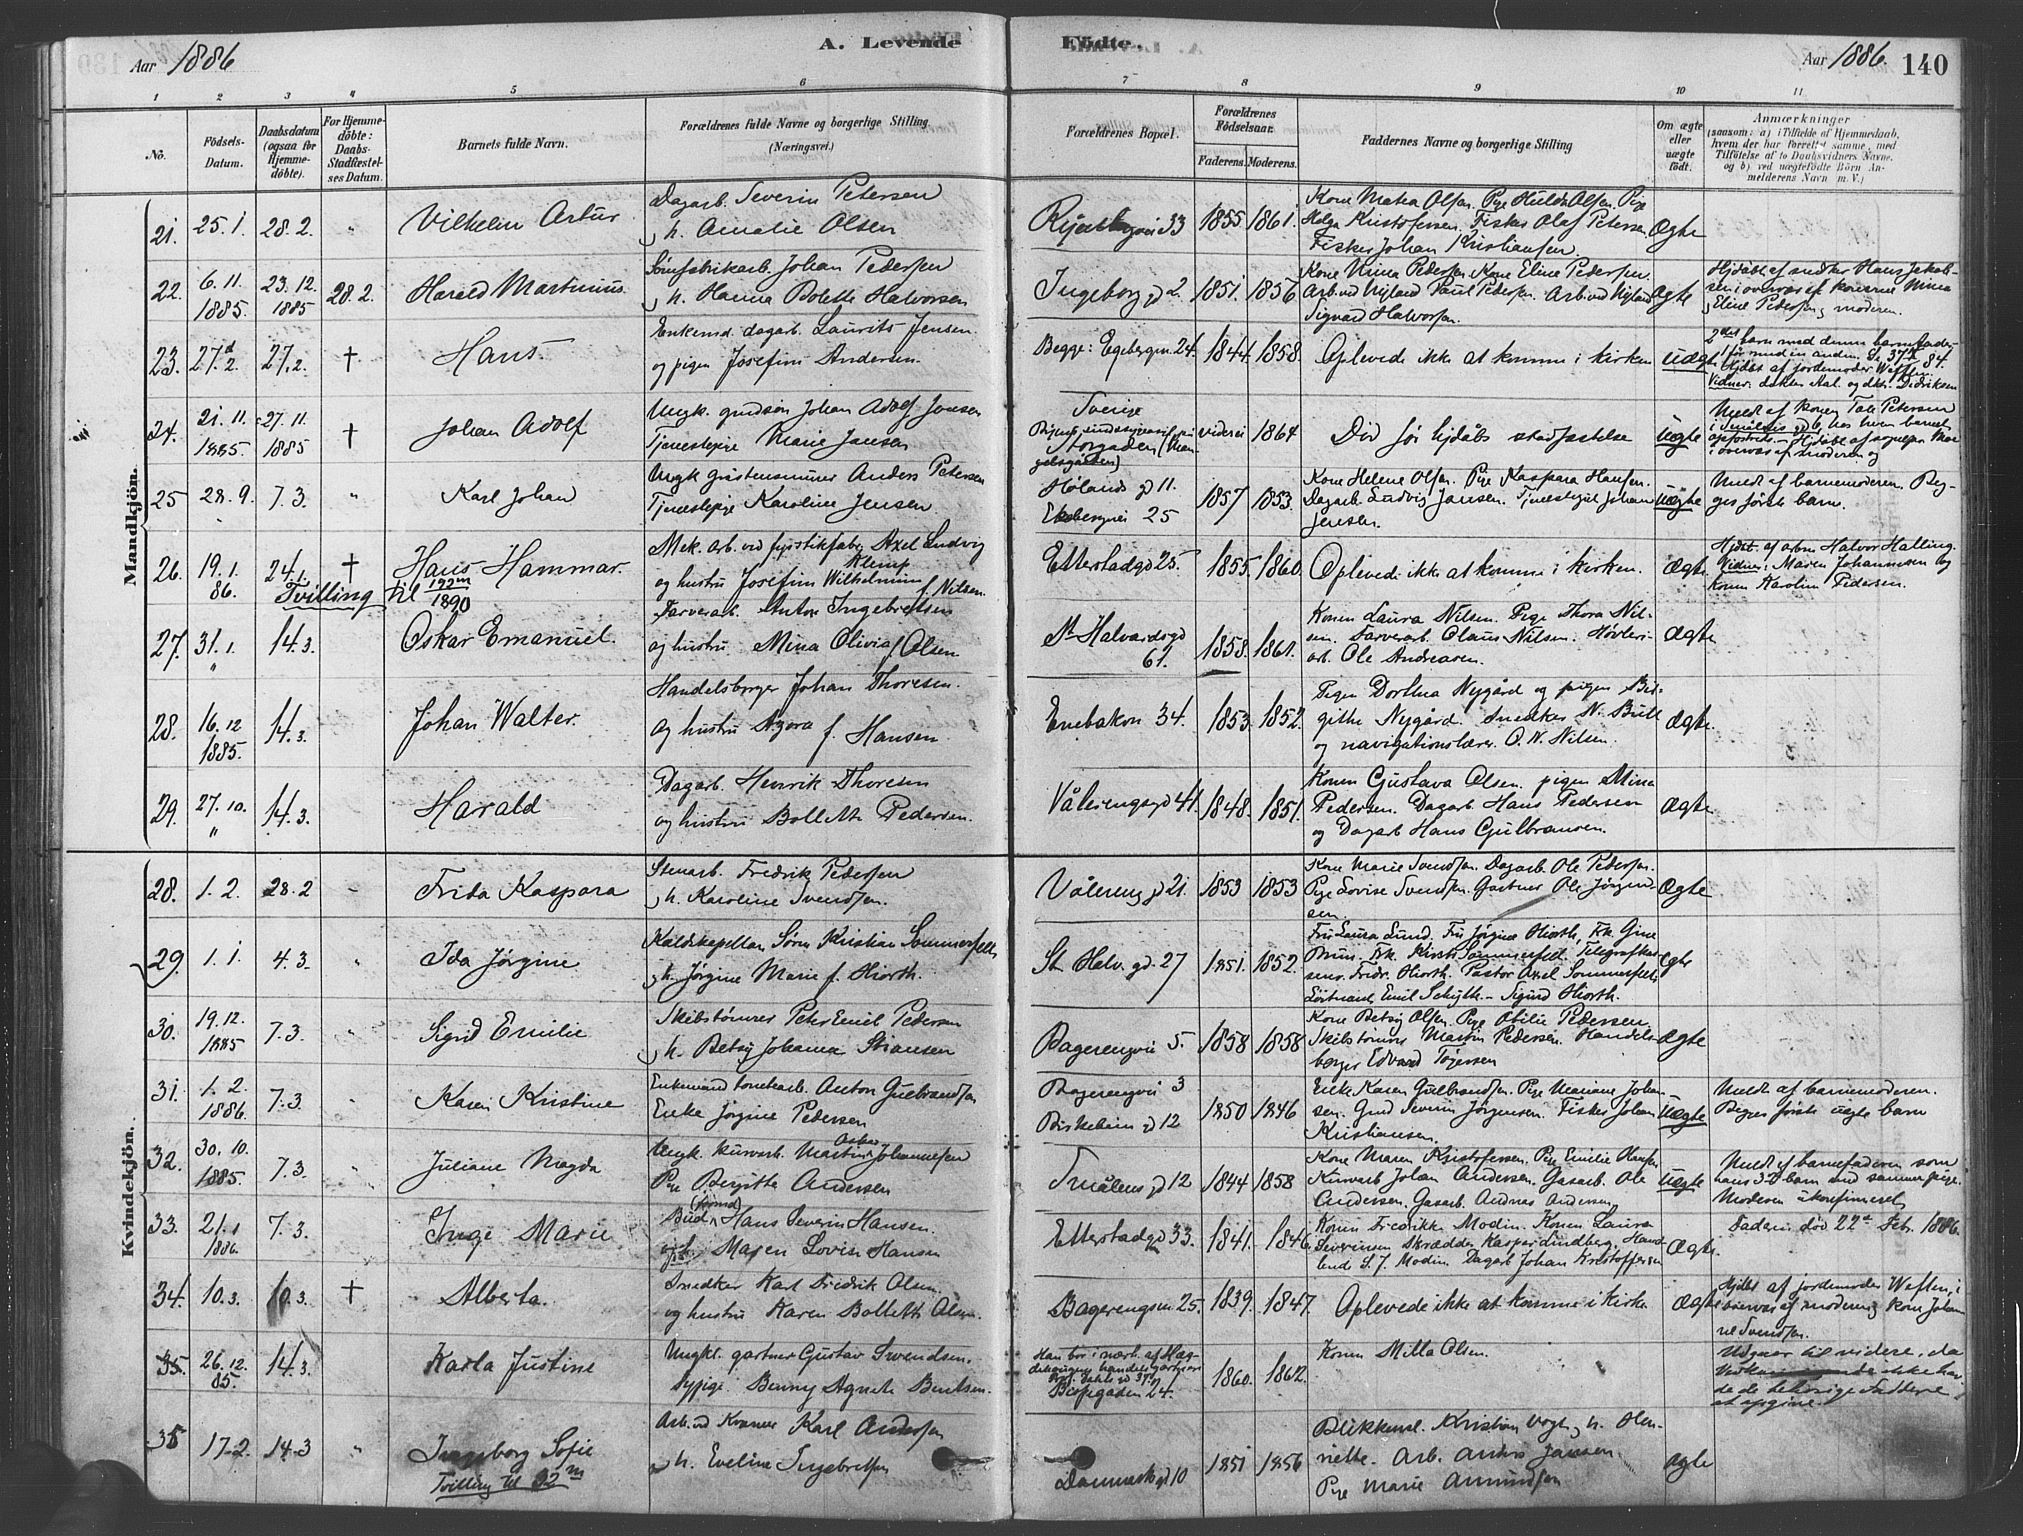 Aar 1886
A. Levende
Födte.
Aar 1886.
140
1 2 3 4 5 6 7 8 9 10 11
No.
Födsels-
Datum.
Daabsdatum
(ogsaa for
Hjemme-
döbte).
For Hjemme-
döbte:
Daabs-
Stadfæstel-
ses Datum.
Barnets fulde Navn.
Forældrenes fulde Navne og borgerlige Stilling
(Næringsvei.)
Forældrenes Bopæl.
Forældrenes
Födselsaar.
Faderens. Moderens.
Faddernes Navne og borgerlige Stilling
Om ægte
eller
uægte
födt.
Anmærkninger
(saasom: a) i Tilfælde af Hjemmedaab,
hvem der har forrettet samme, med
Tilföielse af to Daabsvidners Navne,
og b) ved uægtefödte Börn An-
melderens Navn m. V.)
Mandkjön.
21. 25. 1. 28. 2. " Vilhelm Artur
Dagarb. Severin Petersen
h. Amalie Olsen
33 1855 1861.
Kone Matea Olsen. Pige Hulda Olsen. Pige
Helga Kristofersen. Fisker Olaf Petersen
Fisker Johan Kristiansen.
Ægte
22. 6. 11. 1885. 23. 12. 1885 28. 2. Harald Martinius.
Johan Pedersen
h. Hanna Bolette Halvorsen
Ingeborg gd 2. 1851. 1856
Kone Mina Pedersen. Kone Eline Pedersen.
Arb. ved Nyland Paul Pedersen. Arb. ved Nyland
Sigvard Halvorsen
Ægte
Hjdöbt af snedker Hans Jakob-
sen i overvær af konerne Mina
Eline Pedersen, moderen.
23. 27. 2. 27. 2. † Hans.
Enkemd. dagarb. Laurits Jensen
og pigen Josefine Andersen
Begge: Egebergvn 24. 1844. 1858.
Oplevede ikke at komme i kirken
uægte
2det barn med denne barnefader
af jordemoder Weflen.
24. 21. 11. 1885 27. 11. 1885 † Johan Adolf
Ungk. Johan Adolf Jonsen
Tjenestepige Marie Jansen
Sverige
Storgaden
1864
Död för hjdåbs stadfæstelse
uægte
Meldt af konen Petersen
25 28. 9. 7. 3. " Karl Johan
Ungk. Anders Petersen
Tjenestepige Karoline Jensen.
Hølands gd 11.
Ekebergvei 25
1857 1853.
Kone Helene Olsen. Pige Kaspara Hansen.
Dagarb. Ludvig Jansen. Johan
Jensen.
uægte
Meldt af barnemoderen. Beg-
ges første barn.
26. 19. 1. 86. 24. 1. † Hans Hammar.
Tvilling til 122m 1890
Mek. arb. ved fyrstikfabr. Axel Ludvig
Klemp
og hustru Josefine Wilhelmine f. Nilsen.
Etterstadgd 25. 1855. 1860.
Oplevede ikke at komme i kirken.
Ægte
Hjdøbt. af arbm. Halvor Halling.
Vidner: Maren Johannesen og
konen Karoline Pedersen.
27. 31. 1. " 14. 3. Oskar Emanuel.
Farverarb. Anton Ingebretsen
og hustru Mina Olivia f. Olsen
St Halvardsgd 61. 1858. 1861.
Konen Laura Nilsen. Pige Thora Nil-
sen. Farverarb. Claus Nilsen. Høvleri-
arb. Ole Andreasen.
ægte
28. 16. 12 1885. 14. 3. Johan Walter.
Handelsborger Johan Thoresen.
og hustru Azora f. Hansen.
Enebakvn 34. 1853. 1852.
Pigen Dorthea Nygård og pigen Bir-
githe Nygård. Snedker N. Bull
og navigationslærer O. N. Nilsen.
ægte.
29. 27. 10. " 14. 3. Harald
Dagarb. Henrik Thoresen
og hustru Bollette Pedersen.
Våleringsgd 41. 1848. 1851.
Konen Gustava Olsen. pigen Mina
Pedersen. Dagarb Hans Pedersen
og Dagarb Hans Gulbransen.
ægte.
Kvindekjön.
28. 1. 2. 28. 2 – Frida Kaspara
Stenarb. Fredrik Pedersen
h. Karoline Svendsen.
Vålereng gd 21. 1853 1853
Kone Marie Svendsen. Dagarb. Ole Pedersen.
Pige Lovise Svendsen. Gartner Ole Jörgen-
sen.
Ægte
29. 1. 1. 4. 3. " Ida Jørgine
Kaldskapellan Sørn Kristian Sommerfelt,
h. Jørgine Marie f. Hiorth.
St. Halv. gd 27 1851. 1852.
Fru Laura Lund. Fru Jørgine Hiorth, Frk. Gine
Bruun. Frk. Kirsti Sommerfelt. Telegrafkas-
serer Fridr. Hiorth. Pastor Axel Sommerfelt.
Løitnant Emil Schytte – Sigurd Hiorth.
ægte
30. 19. 12. 1885 7. 3. " Sigrid Emilie
Skibstømrer Peter Emil Pedersen
h. Betsy Johanna Stiansen
Bagerengvei 5. 1858 1858
Kone Betsy Olsen. Pige Otilie Pedersen,
Skibstømrer Martin Pedersen. Handels-
borger Edvard Tøgersen
Ægte
31. 1. 2. 1886. 7. 3. " Karen Kristine
Enkemand Anton Gulbrandsen
Enke Jørgine Pedersen
Bagerengvei 3
Birkelunn gd 12
1850 1846
Enke Karen Gulbrandsen. Pige Mariane Johan-
sen. Severin Jørgensen. Fisker Johan
Kristiansen.
uægte
Meldt af barnemoderen.
Begges første uægte barn
32. 30. 10. 1885. 7. 3. " Juliane Magda
Ungk. kurvarb. Martin Oskar Johannesen
Pige Birgitte Andersen
Smålens gd 12 1844 1858
Kone Maren Kristofersen. Pige Emilie Hansen
Kurvarb Johan Andersen. Gasarb. Ole
Andersen. Gasarb. Andreas Andersen
uægte
Meldt af barnefaderen som
hans 3die barn med samme pige.
Moderen ukonfirmeret.
33. 21. 1. 1886. 7. 3. " Inga Marie
Bud (formd) Hans Severin Hansen.
Maren Lovise Hansen
Etterstadgd 33. 1841. 1846.
Konen Fredrikke Modin. Konen Laura
Severinsen Skrædder Kasper Lindberg, Hand-
lende S. J. Modin. Dagarb Johan Kristoffersen
Ægte.
Faderen död 22d Febr. 1886.
34. 10. 3. 10. 3. † Alberta.
Snedker Karl Fredrik Olsen
og hustru Karen Bollette Olsen.
Bagerengsvn 25. 1839. 1847.
Oplevede ikke at komme i kirke
ægte
Hjdøbt af jordemoder Weflen, i
overvær af moderen og kone Johan-
ne Svendsen.
35. 26. 12. 85. 14. 3. Karla Justine
Ungkl. gartner Gustav Svendsen.
Sypige. Benny Agnete Bentsen.
Han bor i nærh. af Hæg-
dehaugens handelsgartneri
Bispegaden 24.
1860. 1862.
Konen Milla Olsen.
Udgaar til videre, da
ikke hav-
de de behørige Faddere
at opgive.
35 17. 2. 14. 3 " Ingeborg Sofie
Tvilling til 32m
Arb. vd Kværner Karl Andersen
h. Eveline Ingebretsen
Danmarksgd 10 1851 1856
Blikkensl. Kristian Vogt, h. Olen-
riette. Arb. Anders Jansen
Pige Marie Amundsen
ægte